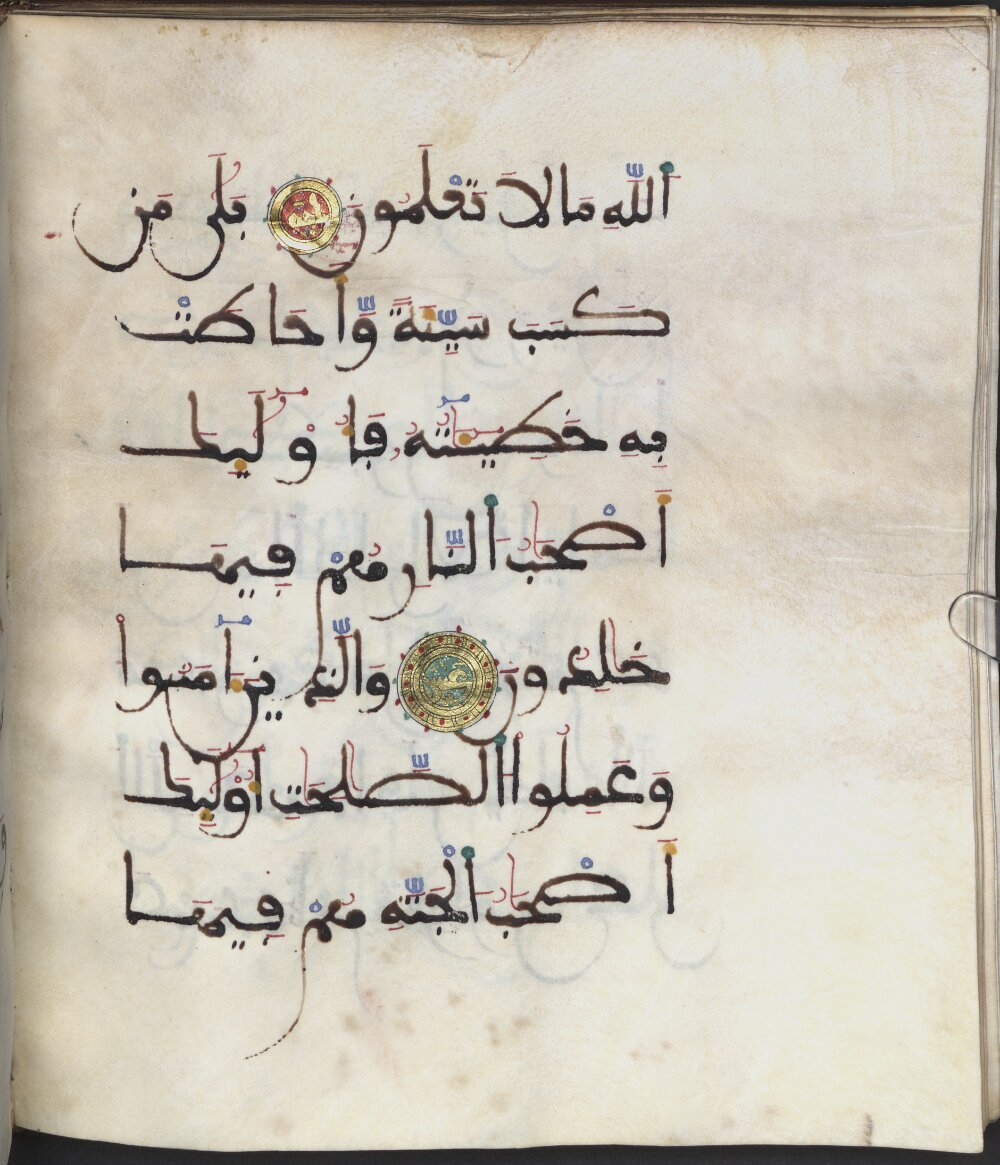 اَ۬للَّهِ مَا لَا تَعْلَمُونَ بَلٰى مَن
كَسَبَ سَيِّئَةً وَّأَحَاطَتْ
بِهِۦ خَطِيـَٰٔتُهُۥ فَأُوْلَٰٓئِكَ
أَصْحَٰبُ اُ۬لنَّارِ هُمْ فِيهَا
خَٰلِدُونَ وَالَّذِينَ ءَامَنُوا
وَعَمِلُوا اُ۬لصَّٰلِحَٰتِ أُوْلَٰٓئِكَ
أَصْحَٰبُ اُ۬لْجَنَّةِ هُمْ فِيهَا